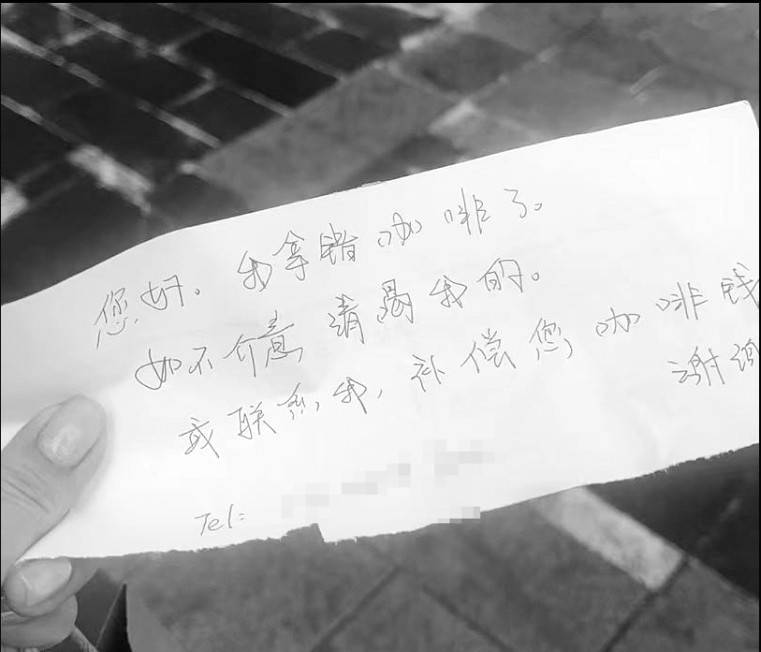 您好。我拿错咖啡了。
如不介意请喝我的。
或联系我，补偿您咖啡钱
谢谢
Tel: